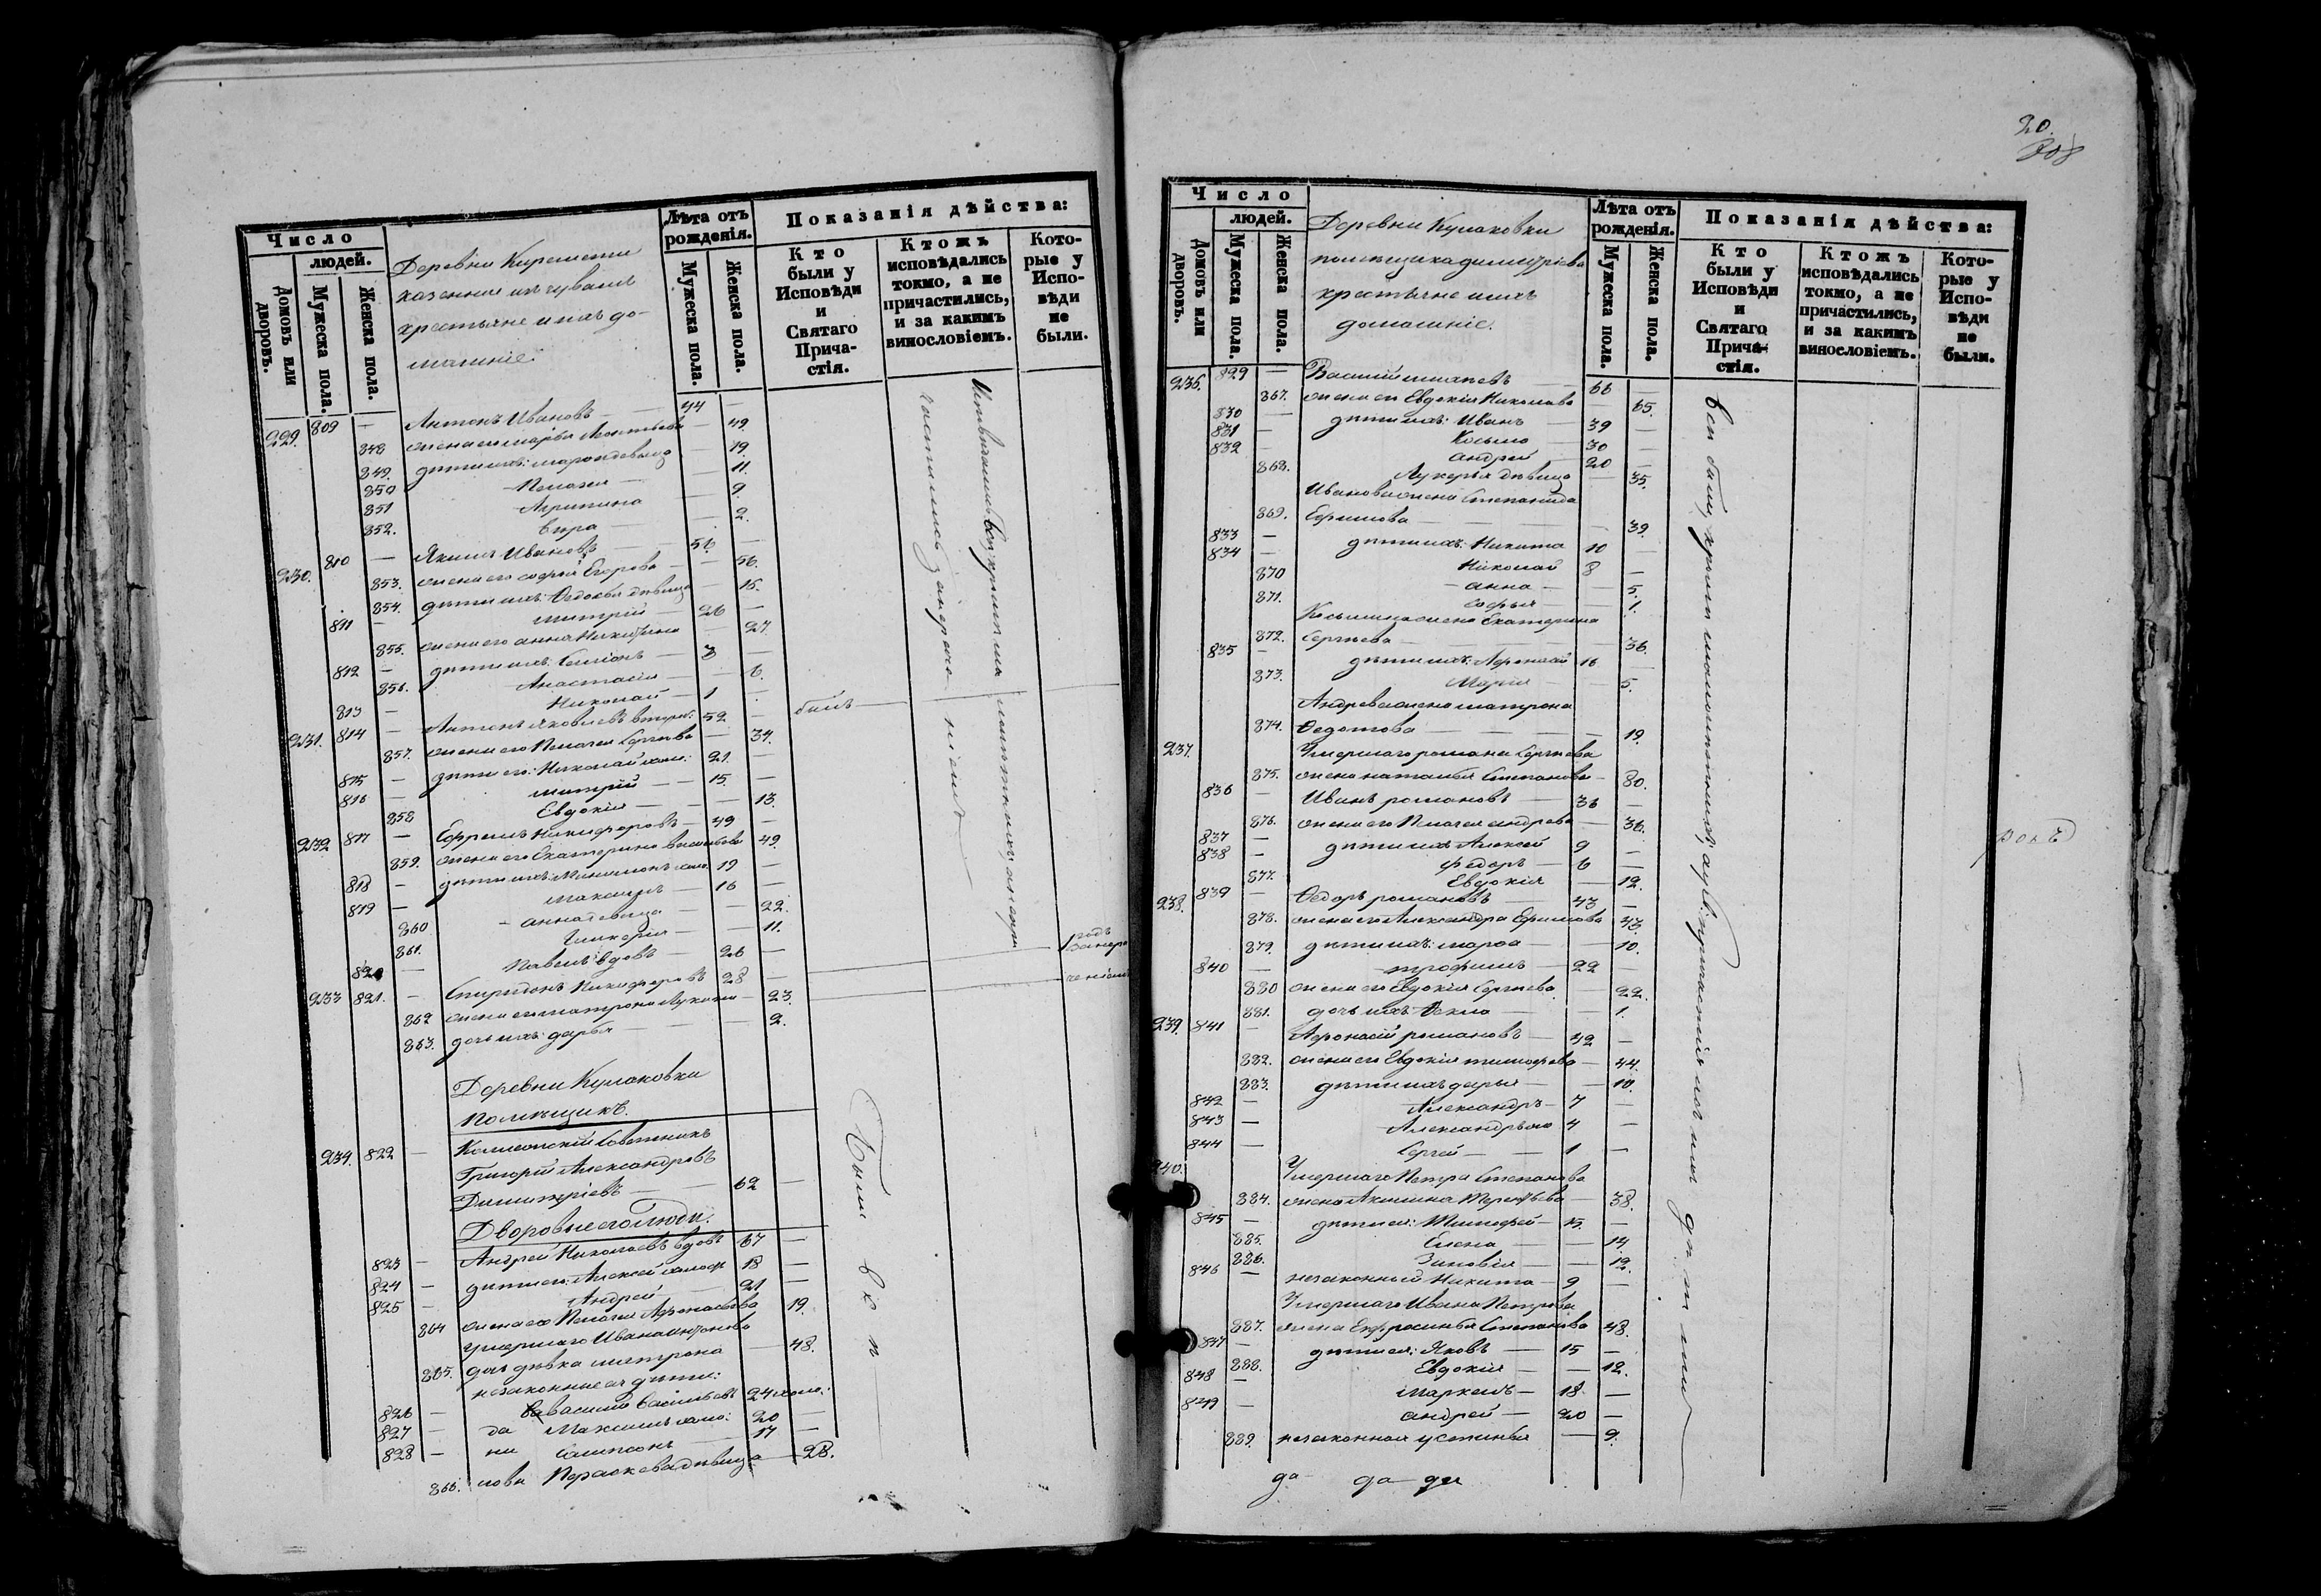 Число
людей.
Домовъ или дворовъ.
Мужеска пола.
Женска пола.
Деревни Киремети
казенные изъ чувашъ
крестьяне и ихъ до-
машніе:
Лѣта отъ рожденія.
Мужеска пола.
Женска пола.
Показанія дѣйства:
Кто были у Исповѣди и Святаго Причастія.
Ктожъ исповѣдались токмо, а не причастились, и за какимъ винословіемъ.
Которые у Исповѣди не были.
229. 809 — Антонъ Ивановъ — 44 —
848 жена его марья Леонтьева — 49.
849. дѣти ихъ: марѳа девица — 19.
850 Пелагея — 11.
851 Агрипина — 9
852. — 2.
230. 810 — Якимъ Ивановъ — 56 —
853. жена его софья Егорова — 56.
854. дѣти ихъ: Ѳедосья дѣвица — 16.
811 — митрій — 26 —
855. жена его анна Никитина — 27.
812 — дѣти ихъ: Семіонъ — 8 —
856. Анастасія — 6.
813 — Николай — 1 —
231. 814 — Антонъ Яковлевъ — 52 — былъ
857. жена его Пелагея Сергѣева — 34.
815 — дѣти его: Николай холо: 21. —
816 — митрій — 15. —
858 Евдокія — 13.
232 817 — Ефремъ Никифоровъ — 49 —
859. жена его Екатерина васильева 49.
818 — дѣти ихъ: холо. 19 —
819 — макаръ — 16 —
860 — анна девица — 22.
861. Гликерія — 11.
820 — Павелъ вдовъ — 26 —
233 821. — Спиридонъ Никифоровъ 28 —
862 жена его матрона Лукина — 23.
863. дочь ихъ: дарья — 2.
Деревни Кулаковки
Помѣщикъ.
234. 822 — Коллежскій Советникъ
Григорій Александровъ
Димитріевъ — 62 —
Дворовые его люди:
823 — Андрей Николаевъ вдовъ 67 —
824 — дѣти его: Алексей холос 18 —
825 — Андрей — 21 —
864 жена его Пелагея Афонасьева 19.
умершаго Ивана антонова
865. дочь дѣвка матрона — 48.
незаконные ея дѣти:
826 — василій васильевъ 24 холо:
827 — да Максимъ холо: 20 —
828 — ни Самсонъ — 17 —
866. лова Параскева дѣвица — 28.
Были всѣ
20.
308
Число
людей.
Домовъ или дворовъ.
Мужеска пола.
Женска пола.
Деревни Кулаковки
помѣщика димитріева
крестьяне и ихъ
домашніе.
Лѣта отъ рожденія.
Мужеска пола.
Женска пола.
Показанія дѣйства:
Кто были у Исповѣди и Святаго Причастія.
Ктожъ исповѣдались токмо, а не причастились, и за какимъ винословіемъ.
Которые у Исповѣди не были.
829 — Василій — 66 —
867. жена его Евдокія Николаева — 65.
830 — дѣти ихъ: Иванъ — 39 —
831 — Косьма — 30 —
832 — андрей — 20 —
868. Лукерья дѣвица — 35.
Иванова жена Степанида
869. Ефимова — 39.
833 — дѣти ихъ: Никита 10 —
834 — Николай 8 —
870 — анна — 5.
871. софья — 1.
Косьмина жена Екатерина
872. Сергѣева — 36.
835 — дѣти ихъ: Афонасій 16 —
873. Марія — 5.
Андрева жена матрона
874. Ѳедотова — 19.
237. Умершаго романа Сергѣева
875. жена наталья Степанова — 80.
836 — Иванъ романовъ — 36 —
876. жена его Пелагея андрева — 36.
837 — дѣти ихъ Алексей 9 —
838 — федоръ — 6 —
877. Евдокія — 12.
238. 839 — Ѳедоръ романовъ — 43 —
878. жена его Александра Ефимова 43.
879. дѣти ихъ: марѳа — 10.
840 — трофимъ — 22 —
880 жена его Евдокія Сергѣева — 22.
881. дочь ихъ: Ѳекла — 1.
239. 841 — Афонасій романовъ — 42 —
882. жена его Евдокія тимофева — 44.
883. дѣти ихъ дарья — 10.
842 — Александръ — 7 —
843 — Александръ 4 —
844 — Сергей — 1 —
240. Умершаго Петра Степанова
884. жена Акилина Терентьева — 38.
845 — дѣти ея: Тимофей — 15. —
885. Елена — 14
886. Зиновія — 12.
846 — незаконный Никита — 9 —
Умершаго Ивана Петрова
887. жена Ефросинья Степанова 48.
847 — дѣти ея: Яковъ — 15 —
888. Евдокія — 12.
848 — маркелъ — 18. —
849 — андрей — 20 —
889. незаконная устинья — 9.
да да да